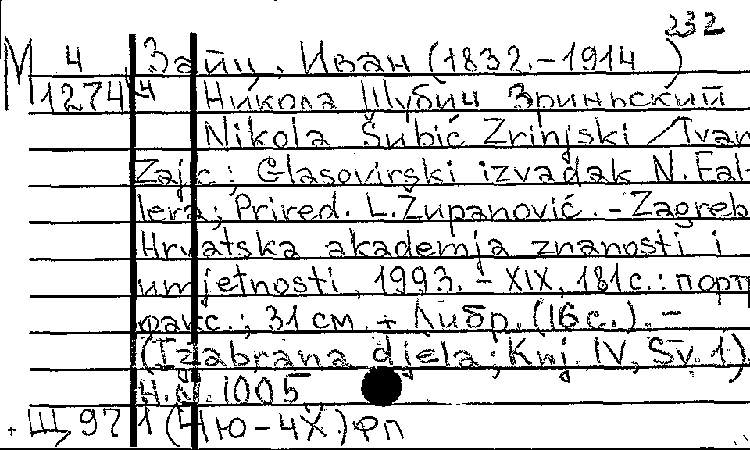 232
М 4 Зайц, Иван (1832.-1914 )
1274 ч Никола Шубич Зриньский
Nikola Šubić Zrinjski / Ivan
Zajc; Glasovirski izvadak N. Fal-
lera; Prired. L. Županović. - Zagreb
Hrvatska akademja znanosti i
umjetnosti, 1993. - XIX, 181 с.: порт
факс.; 31 см + Либр. (16 с.). -
(Izabrana djela; Knj. IV, Sv. 1)
H.N. 1005
+ Щ 97 1 (4Ю-4Х) Фп